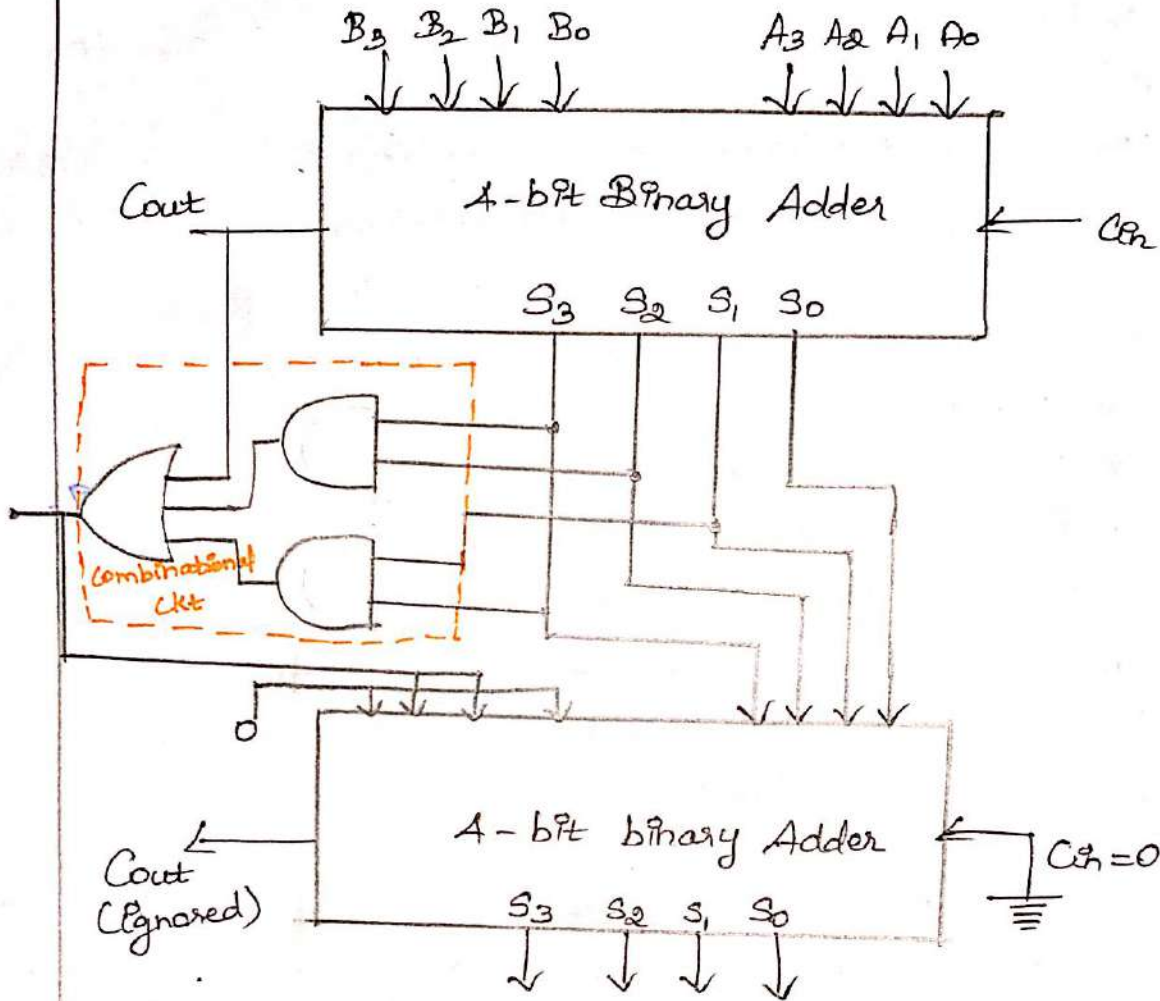 B3 B2 B1 B0 A3 A2 A1 A0
4-bit Binary Adder
Cout
Cin
S3 S2 S1 S0
Combinational
Ckt
0
4-bit binary Adder
Cin=0
Cout
(Ignored)
S3 S2 S1 S0